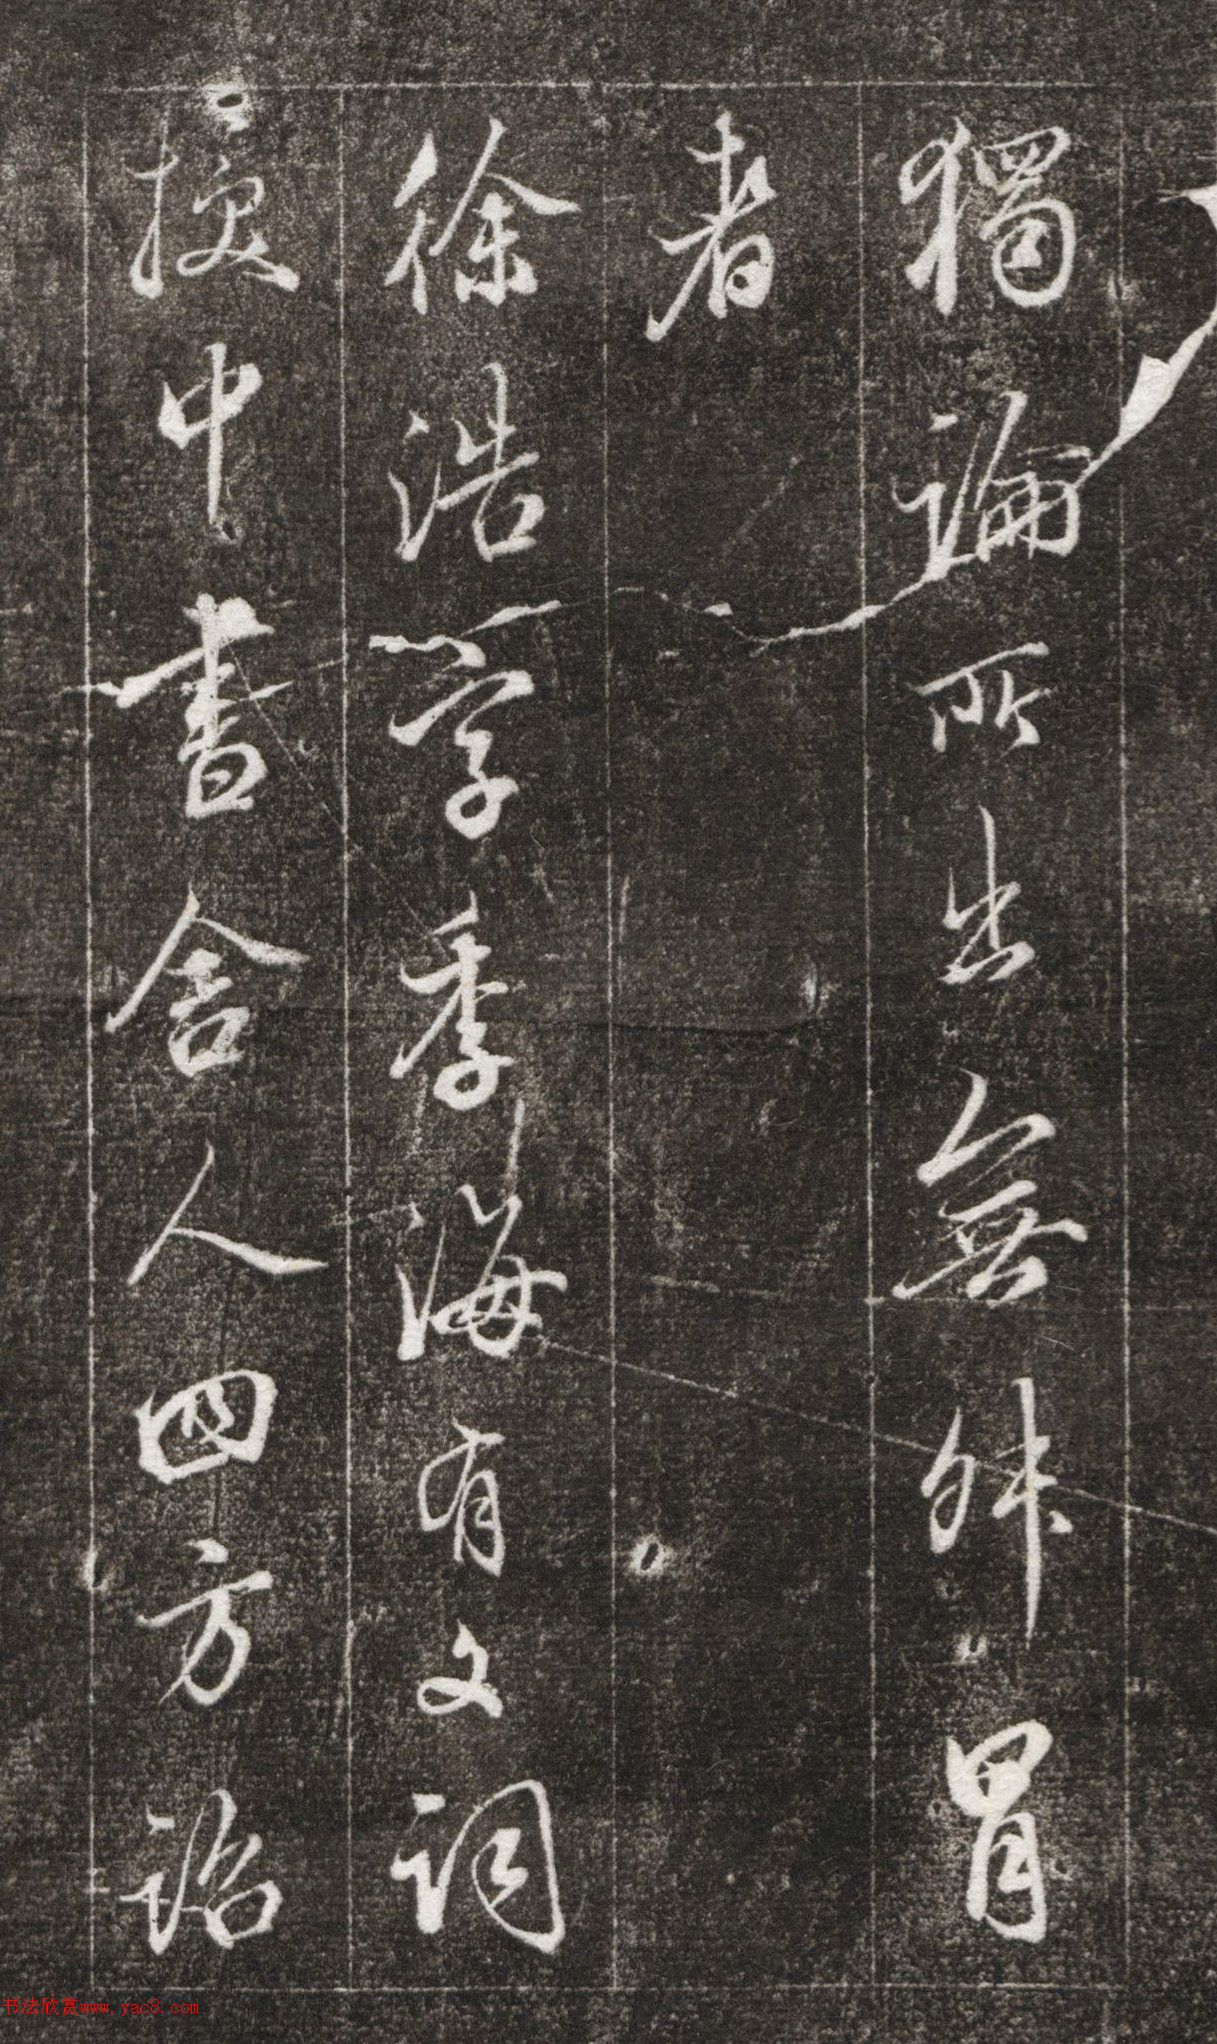 獨論所出無外冑
者
徐浩字季海有文詞
授中書舍人四方詔
书法欣赏www.yac8.com